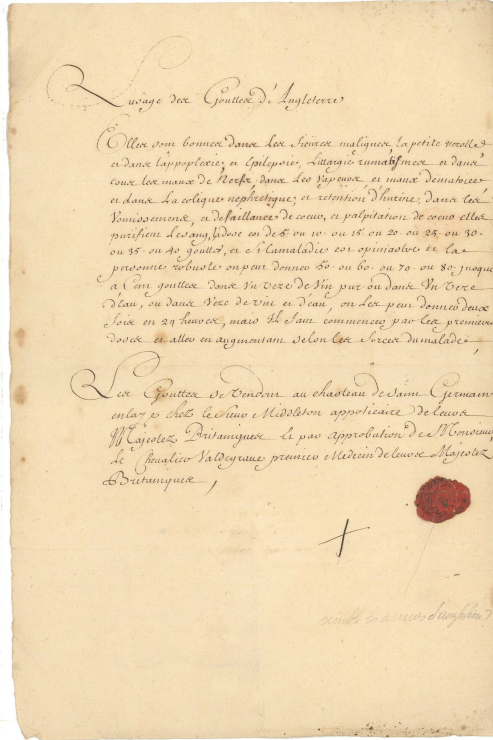 Lusage des Gouttes d'Angleterre
Elles sont bonnes dans les fievres malignes la petite verolle
et dans lappoplexie, et Epilepsie, Littargie rumatismes et dans
tous les maux de Nerfs, dans les vapeurs et maux dematrice
et dans La colique nephretique, et retention d'hurine, dans les
Vomissemens, et defaillance de coeur, et palpitation de coeur elles
purifient Lesang, Ladose en de 5 ou 10 · ou 15 · ou 20 · ou 25 · ou 30 ·
ou 35 · ou 40 gouttes, et Si lamaladie est opiniastre et la
personne robuste on peut donner 50 · ou 60 · ou 70 · ou 80 · Jusque
a Cent gouttes dans Un Vere de Vin pur ou dans Un Vere
d'Eau, ou dans Vere de Vin et d'eau, on Les peut donner deux
fois en 24 heures, mais Il faut commencer par les premieres
doses et aller en augmentant selon les forces dumalade,
Les Gouttes se Vendent au chasteau de saint Germain
enlaye chez le Sieur Middleton appoticaire deleurs
Majestez Britaniques Et par approbation de Monsieur
Le Chevalier Valdegrave premier Medecin deleurs Majestez
Britaniques,
les armes d'angleterre